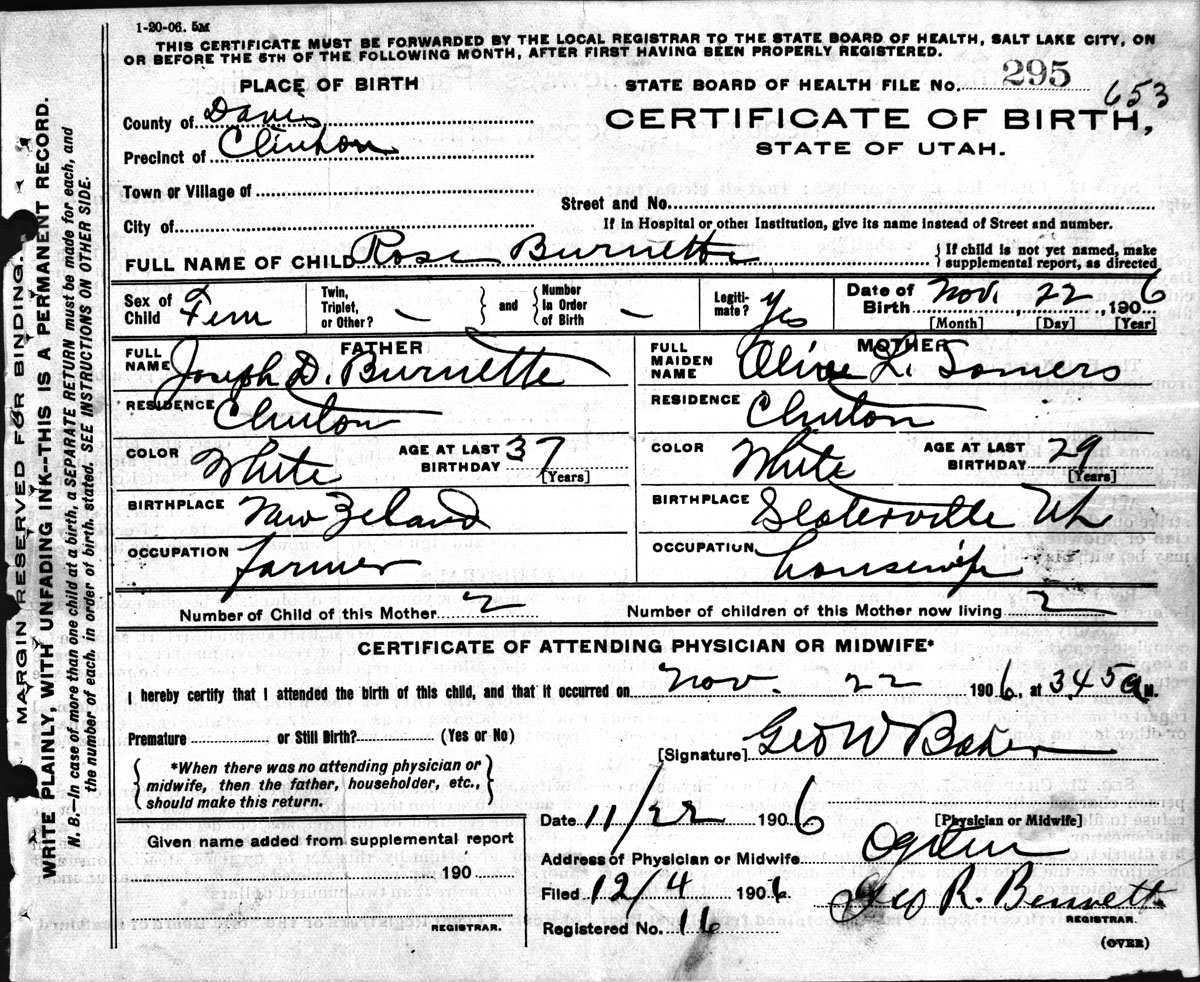 1-20-06. 5M
THIS CERTIFICATE MUST BE FORWARDED BY THE LOCAL REGISTRAR TO THE STATE BOARD OF HEALTH, SALT LAKE CITY, ON
OR BEFORE THE 5TH OF THE FOLLOWING MONTH, AFTER FIRST HAVING BEEN PROPERLY REGISTERED.
PLACE OF BIRTH
STATE BOARD OF HEALTH FILE NO. 295
653
County of Davis
CERTIFICATE OF BIRTH,
Precinct of Clinton
STATE OF UTAH.
Town or Village of
Street and No.
City of
If in Hospital or other Institution, give its name instead of Street and number.
FULL NAME OF CHILD Rose Burnette
{ If child is not yet named, make
supplemental report, as directed
Sex of Child Fem
Twin, Triplet, or Other? –
} and {
Number in Order of Birth –
Legiti-mate? Yes
Date of Birth Nov. 22, 1906
[Month] [Day] [Year]
FATHER
FULL NAME Joseph D. Burnette
RESIDENCE Clinton
COLOR White
AGE AT LAST BIRTHDAY 37
[Years]
BIRTHPLACE New Zeland
OCCUPATION farmer
MOTHER
FULL MAIDEN NAME Olive L. Somers
RESIDENCE Clinton
COLOR White
AGE AT LAST BIRTHDAY 29
[Years]
BIRTHPLACE Slaterville Uh
OCCUPATION housewife
Number of Child of this Mother 2
Number of children of this Mother now living 2
CERTIFICATE OF ATTENDING PHYSICIAN OR MIDWIFE*
I hereby certify that I attended the birth of this child, and that it occurred on Nov. 22 1906, at 345 a M.
Premature or Still Birth? (Yes or No)
[Signature] Geo W Baker
{ *When there was no attending physician or
midwife, then the father, householder, etc.,
should make this return. }
Date 11/22 1906
[Physician or Midwife]
Given name added from supplemental report
190
REGISTRAR.
Address of Physician or Midwife Ogden
Filed 12/4 1906
Geo R. Bennett
REGISTRAR.
Registered No. 16
(OVER)
MARGIN RESERVED FOR BINDING.
WRITE PLAINLY, WITH UNFADING INK--THIS IS A PERMANENT RECORD.
N. B.—In case of more than one child at a birth, a SEPARATE RETURN must be made for each, and
the number of each, in order of birth, stated. SEE INSTRUCTIONS ON OTHER SIDE.